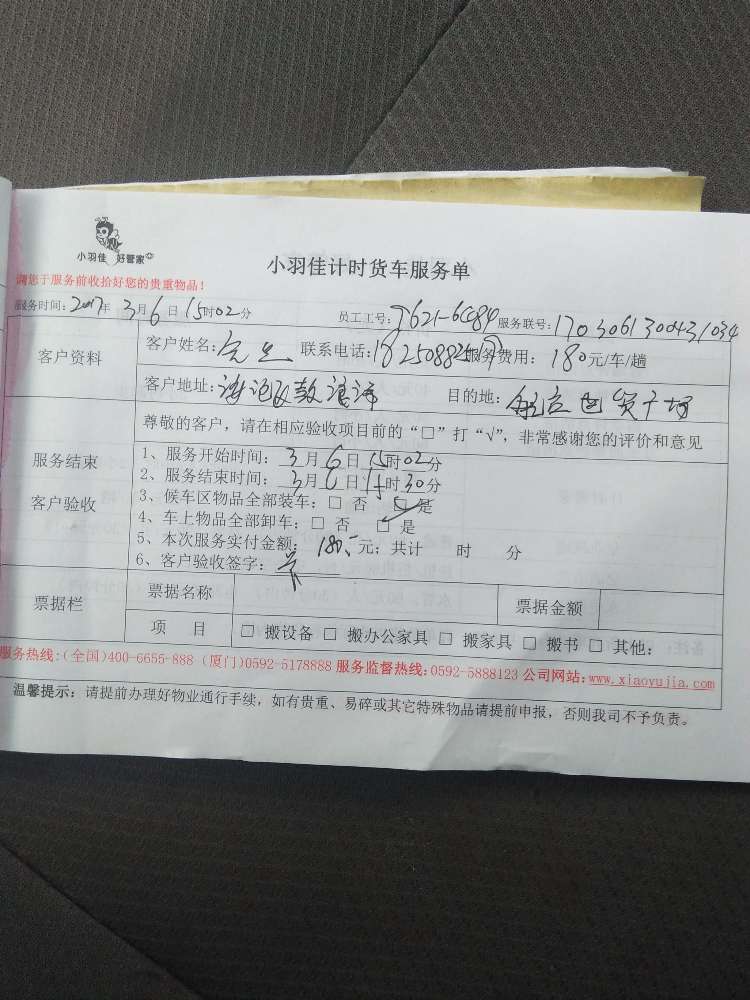 小羽佳 好管家
小羽佳计时货车服务单
请您于服务前收拾好您的贵重物品！
服务时间：2017年 3月 6日 15时02分 员工工号： 服务联号：
客户资料
客户姓名： 联系电话： 服务费用：180元/车/趟
客户地址： 目的地：
尊敬的客户，请在相应验收项目前的“□”打“√”，非常感谢您的评价和意见
服务结束
客户验收
1、服务开始时间：3月6日15时02分
2、服务结束时间：3月6日 时30分
3、候车区物品全部装车：□ 否 □ 是
4、车上物品全部卸车：□ 否 □ 是
5、本次服务实付金额：180.-元；共计 时 分
6、客户验收签字：
票据栏
票据名称 票据金额
项 目 □ 搬设备 □ 搬办公家具 □ 搬家具 □ 搬书 □ 其他：
服务热线：(全国)400-6655-888 (厦门)0592-5178888 服务监督热线：0592-5888123 公司网站：www.xiaoyujia.com
温馨提示：请提前办理好物业通行手续，如有贵重、易碎或其它特殊物品请提前申报，否则我司不予负责。